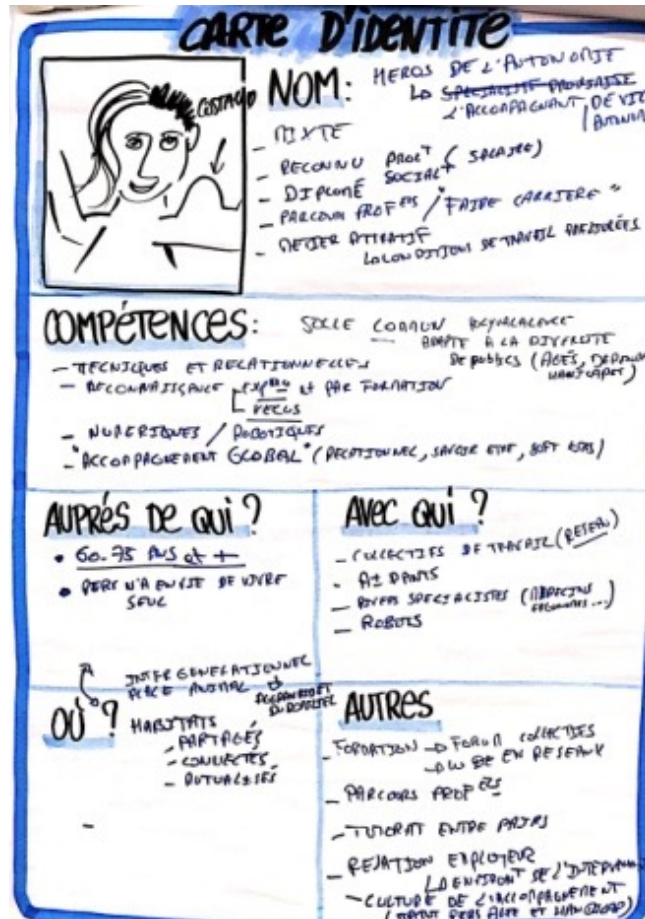 CARTE D'IDENTITE
COSTAUD
NOM: HEROS DE L'AUTONOMIE
L'ACCOMPAGNANT DE VIE
AUTONOME
- MIXTE
- RECONNU PROFT (SALAIRE)
- DIPLOMÉ SOCIALT
- PARCOURS PROFELS / "FAIRE CARRIERE"
- METIER ATTRATIF
CONDITIONS DE TRAVAIL AMELIORÉES
COMPÉTENCES: SOCLE COMMUN POLYVALENCE
ADAPTÉ A LA DIVERSITÉ
DE PUBLICS (AGÉS,
HANDICAPÉS)
- TECNIQUES ET RELATIONNELLES
- RECONNAISSANCE ET PAR FORMATION
VECUS
- NUMERIQUES / ROBOTIQUES
- "ACCOMPAGNEMENT GLOBAL" (RELATIONNEL, SAVOIR ETRE, SOFT)
AUPRÉS DE QUI ?
• 60-75 ANS et +
• PERS N'A ENVIE DE VIVRE
SEUL
AVEC QUI ?
- COLLECTIFS DE TRAVAIL (RESEAU)
- AIDANTS
- DIVERS SPECIALISTES (MEDECINS
ERGONOMES...)
- ROBOTS
INTERGENERATIONNEL
PLACE ANIMAL
OÙ ?
HABITATS
- PARTAGÉS
- CONNECTÉS
- MUTUALISÉS
-
AUTRES
- FORMATION → FORUM COLLECTIFS
EN RESEAUX
- PARCOURS PROFELS
- TUTORAT ENTRE PAIRS
- RELATION EMPLOYEUR
ENVIRONT DE L'INTERVENANT
- CULTURE DE L'ACCOMPAGNEMENT
PERS AGÉE ET HANDICAP)